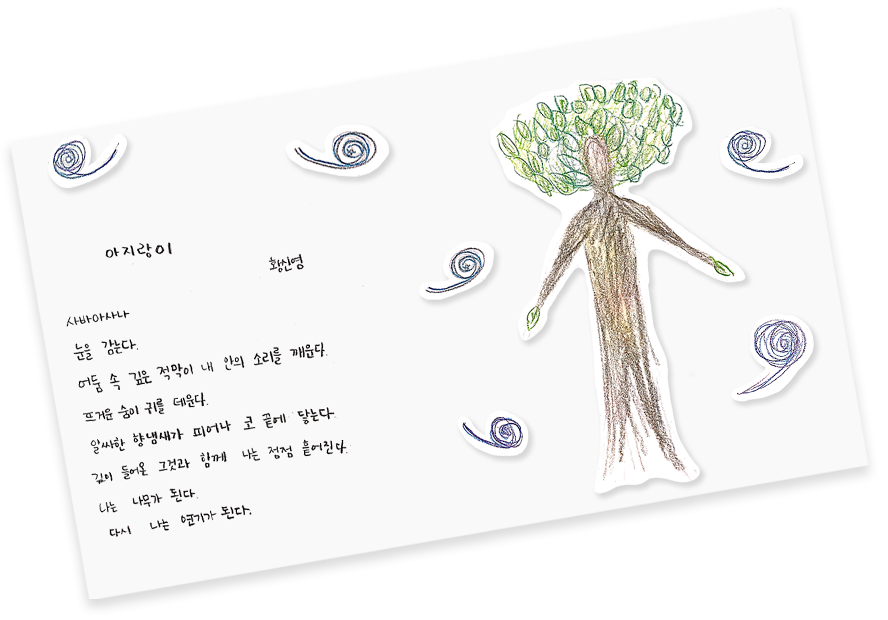 아지랑이
황신영
사바아사나
눈을 감는다.
어둠 속 깊은 적막이 내 안의 소리를 깨운다.
뜨거운 숨이 귀를 데운다.
알싸한 향냄새가 피어나 코 끝에 닿는다.
깊이 들어온 그것과 함께 나는 점점 흩어진다.
나는 나무가 된다.
다시 나는 연기가 된다.